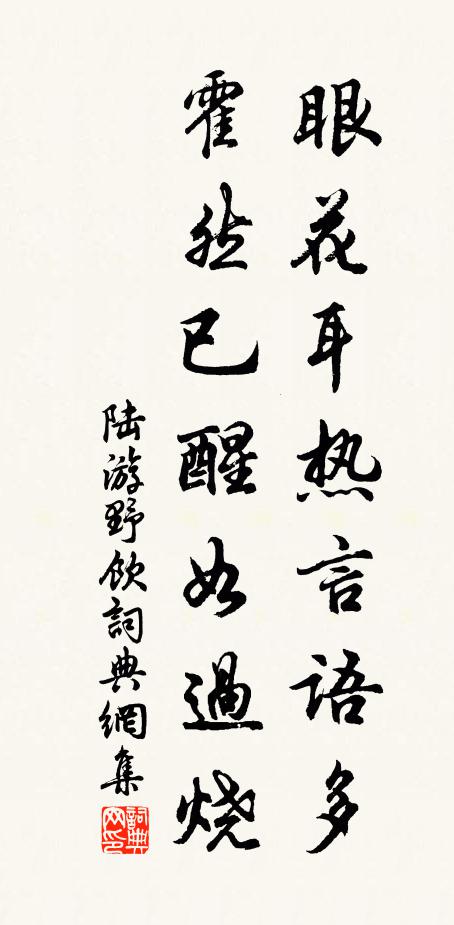 眼花耳热言语多
霍然已醒如過烧
陆游野飲詞典網集
詞典网印